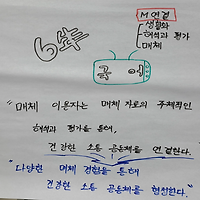 M 연결
생활화
해석과 평가
매체
6학년
국어
"매체 이용자는 매체 자료의 주체적인
해석과 평가를 통해,
건강한 소통 공동체를 연결한다.
"다양한 매체 경험을 통해
건강한 소통 공동체를 형성한다."